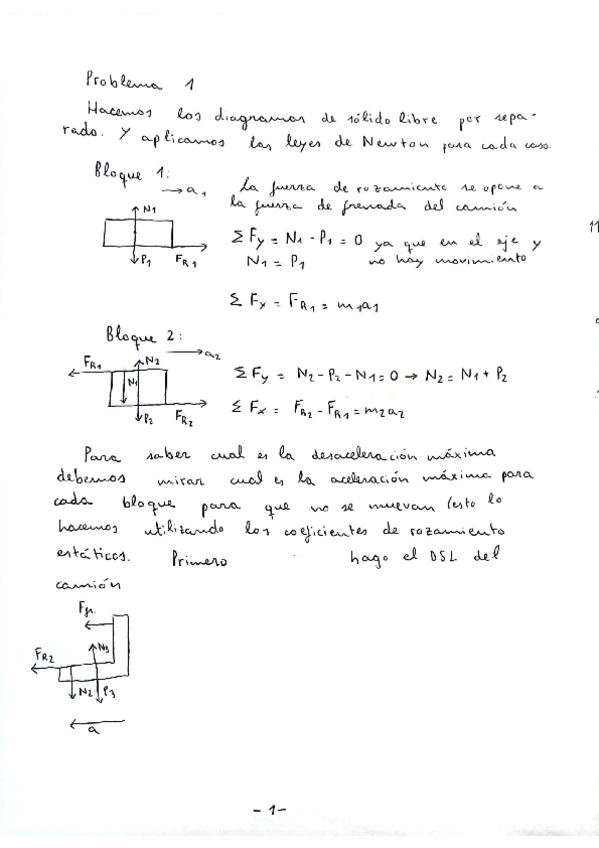 Problema 1
Hacemos los diagramas de sólido libre por sepa-
rado. Y aplicamos las leyes de Newton para cada caso.
Bloque 1:
→ a₁
La fuerza de rozamiento se opone a
la fuerza de frenada del camión
N1
P1
FR1
Σ Fy = N1 - P1 = 0 ya que en el eje y
N1 = P1 no hay movimiento
Σ Fx = FR1 = m1a1
Bloque 2:
→ a2
FR1
N2
N1
P2
FR2
Σ Fy = N2 - P2 - N1 = 0 → N2 = N1 + P2
Σ Fx = FR2 - FR1 = m2a2
Para saber cual es la desaceleración máxima
debemos mirar cual es la aceleración máxima para
cada bloque para que no se muevan (esto lo
hacemos utilizando los coeficientes de rozamiento
estáticos. Primero hago el DSL del
camión
FR2
N3
N2
P3
a
- 1 -